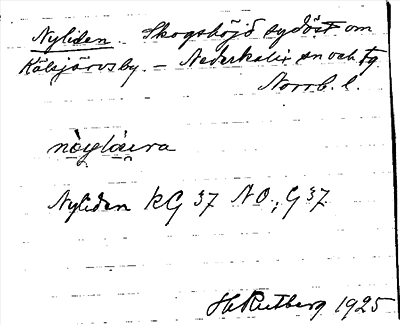 Nyliden. Skogshöjd sydöst om
Kälsjärvsby. – Nederkalix sn och tg
Norrb. l.
nòylà̤i̭ra
Nyliden KG 37 NO; G 37
H Rutberg 1925